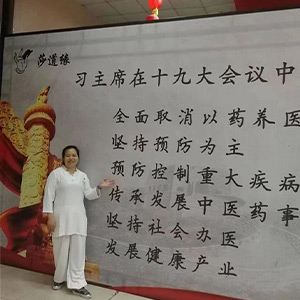 莎莲缘
习主席在十九大会议中
全面取消以药养医
坚持预防为主
预防控制重大疾病
传承发展中医药事
坚持社会办医
发展健康产业